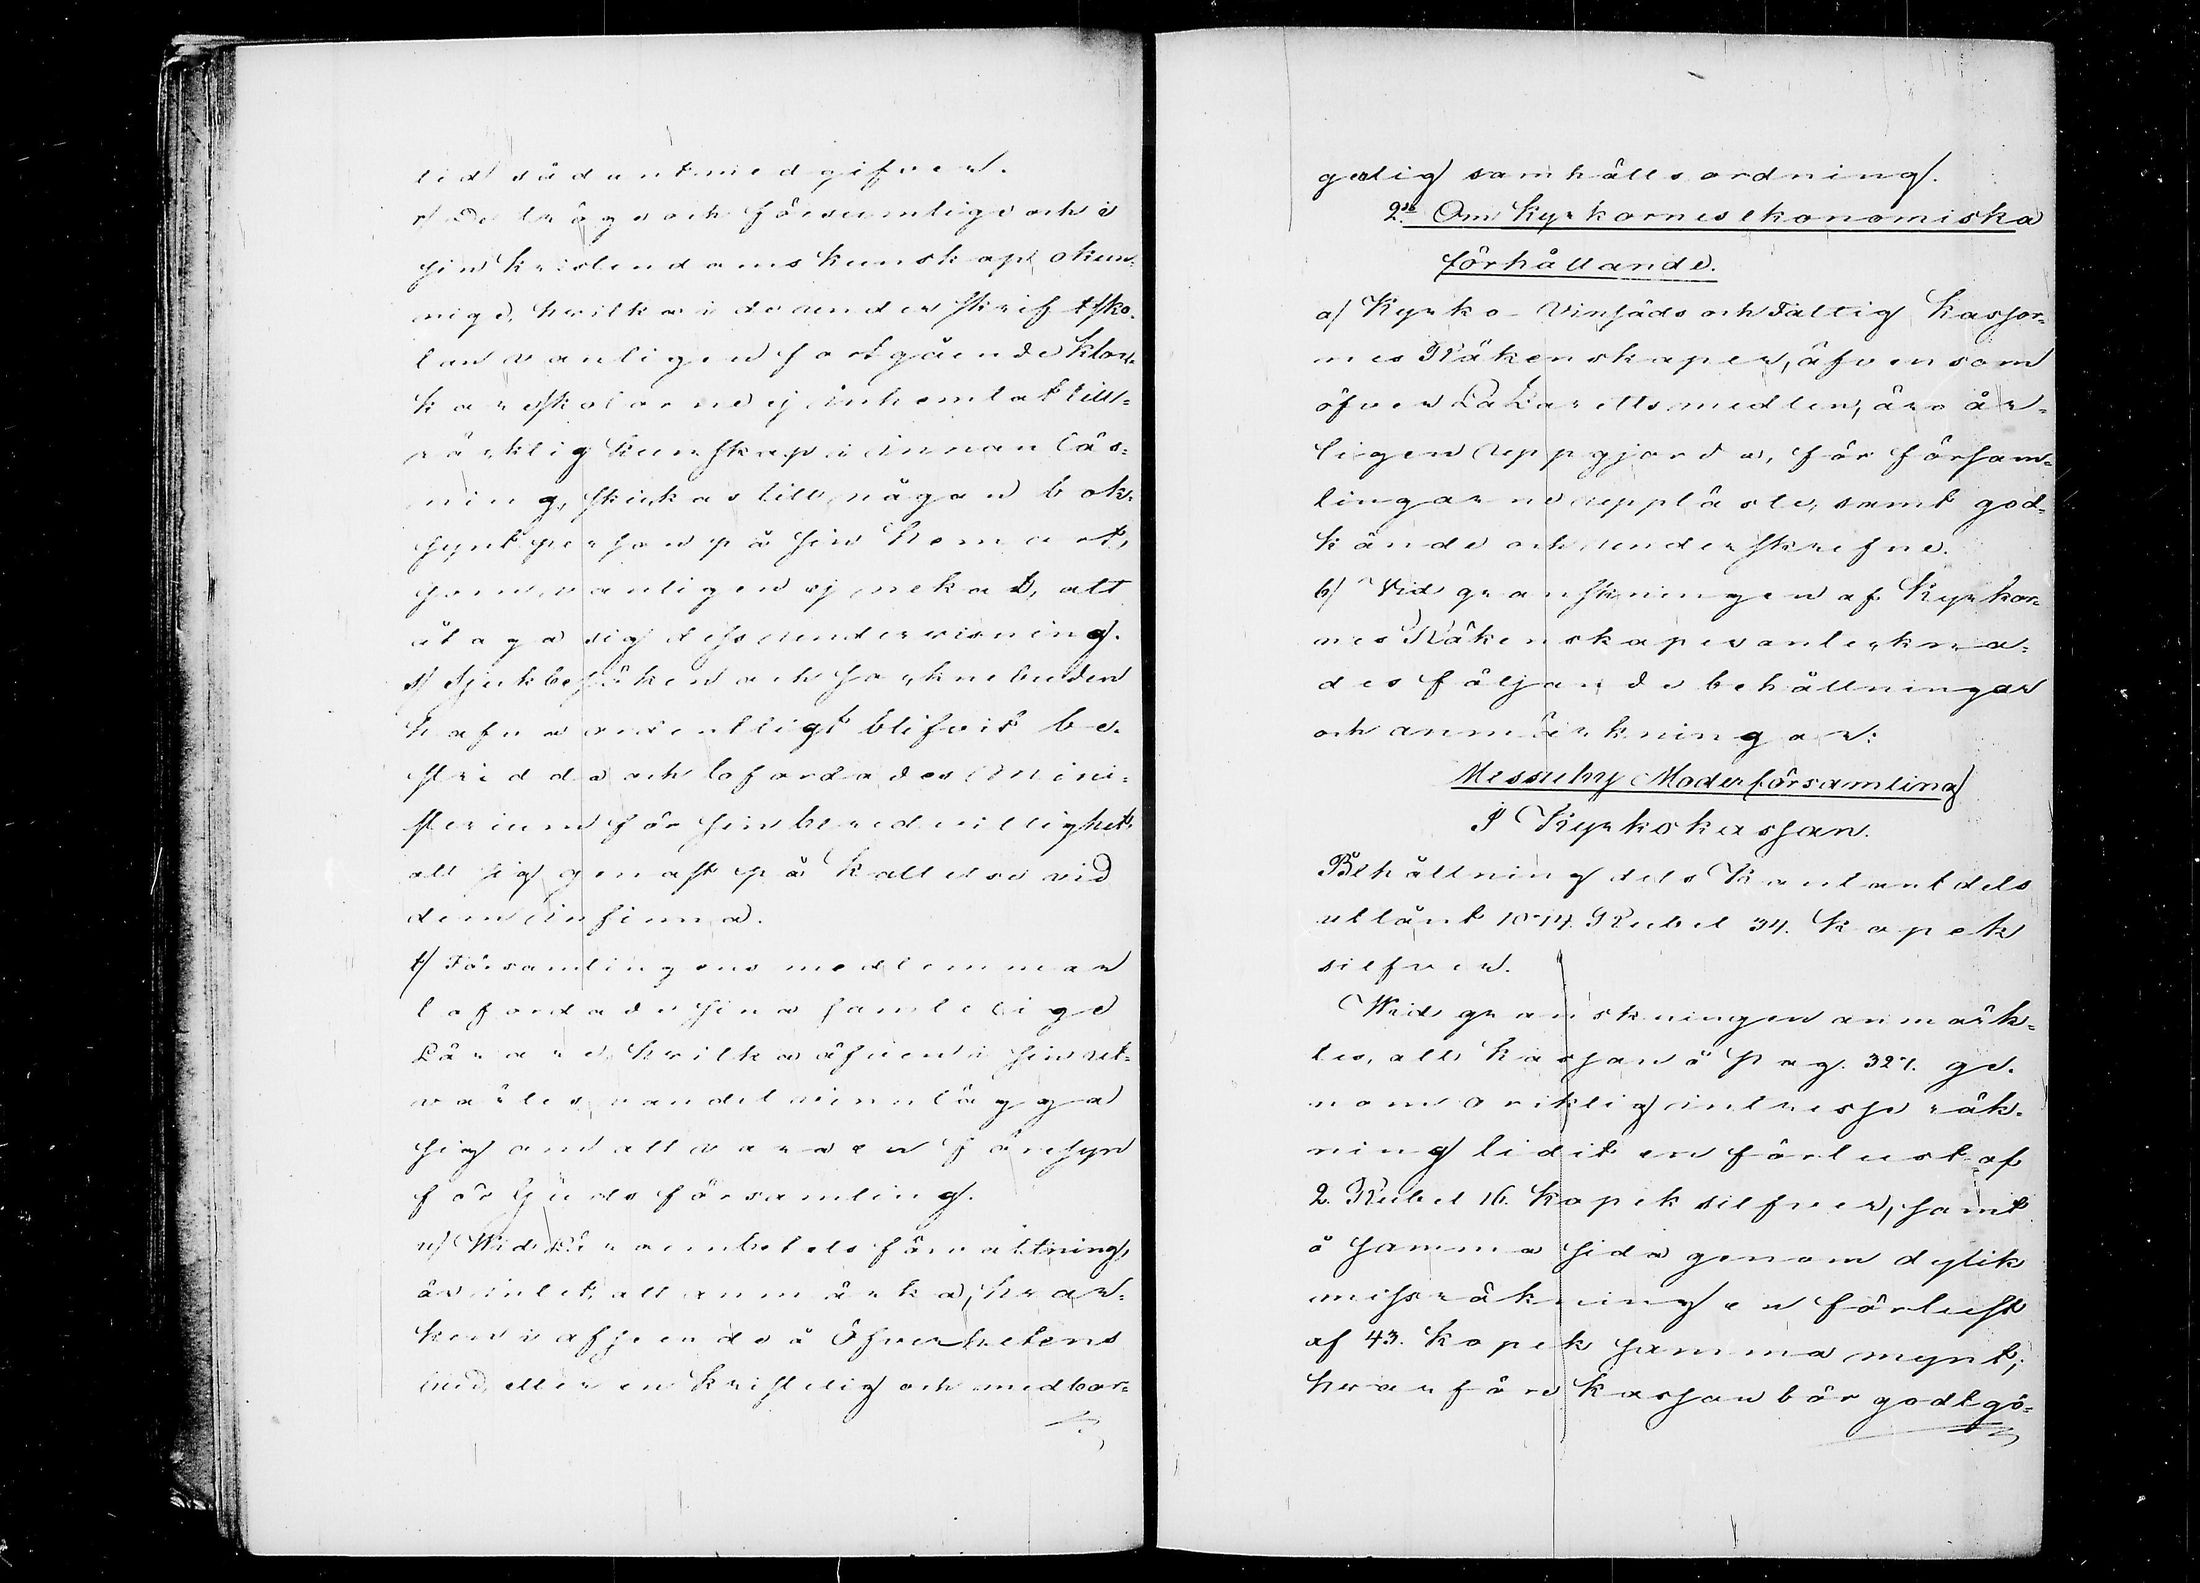 tid sådant medgifver.
r) De tröge och försumlige och i
sin kristendoms kunskap okun-
nige, hvilka i de under skriftsko-
lan vanligen fortgående kloc-
kareskolorne ej inhemtat till-
räcklig kunskap i innan läs-
ning, skickas till någon bok-
synt person på sin hemort,
som vanligen ej nekat, att
åtaga sig dess undervisning.
s) Sjukbesöken och sockne buden
hafva ordentligt blifvit be-
stridda och lofordades Mini-
sterium för sin beredvillighet
att sig genast på kallelse vid
dem infinna.
t) Församlingens medlemmar
lofordade sina samtelige
Lärare, hvilka äfven i sin ut-
värtes vandel vinnlägga
sig om att vara enföresyn
för Guds församling.
u) Wid Läroembetets förvaltning,
är intet att anmärka, hvar-
ken i afseende å Öfverhetens
lud, eller en kristelig och medbor-
gerlig samhällsordning.
2:o Om Kyrkornes ekonomiska
förhållande.
a) Kyrko- Vinsäds och Fattig Kassor-
nes Räkenskaper, äfvensom
öfver Lazarettsmedlen, äro år-
ligen uppgjorda, för försam-
lingarne uppläste, samt god-
kände och underskrefne.
b) Vid granskningen af Kyrkor-
nes Räkenskaper antekna-
des följande behållningar
och anmärkningar:
Messuby Moderförsamling
I Kyrkokassan.
Behållning dels Kontant dels
utlånt 1014. Rubel 34. kopek
silfver.
Wid granskningen anmärk-
tes, att kassan å pag. 327. ge-
nom oriktig intresse räk-
ning lidit en förlust af
2. Rubel 16. kopek silfver, samt
å samma sida genom dylik
missräkning en förlust
af 43. kopek samma mynt;
hvarföre kassan bör godtgö-